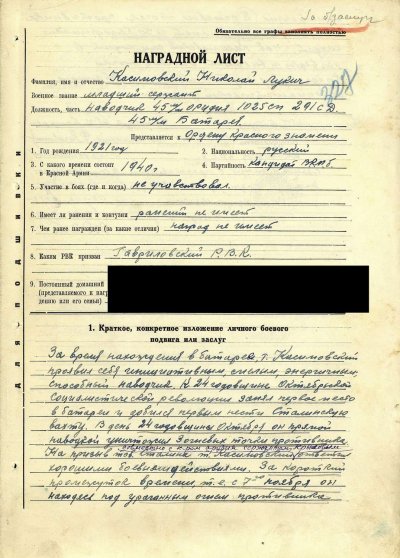 Обязательно все графы заполнять полностью
НАГРАДНОЙ ЛИСТ
Фамилия, имя и отчество Касимовский Николай Лукич
328
Военное звание младший сержант
Должность, часть наводчик 45 м/м орудия 1025 СП 291 с.д.
45 м/м батареи
Представляется к Ордену Красного знамени
1. Год рождения 1921 году 2. Национальность русский
3. С какого времени состоит в Красной Армии 1940 г. 4. Партийность Кандидат ВКПб.
5. Участие в боях (где и когда) не участвовал.
6. Имеет ли ранения и контузии ранений не имеет
7. Чем ранее награжден (за какие отличия) наград не имеет
8. Каким РВК призван Гавриловский Р.В.К.
9. Постоянный домашний
(представляемого к наг
дению или его семьи)
для подшивки
1. Краткое, конкретное изложение личного боевого
подвига или заслуг
За время нахождения в батарее т. Касимовский
проявил себя инициативным, смелым, энергичным,
способный наводчик К 24 годовщине Октябрьской
Социалистической революции занял первое место
в батареи и добился первым нести Сталинскую
вахту. В день 24 годовщины Октября он прямой
наводкой уничтожил 3 огневых точки противника.
На призыв тов. Сталина т. Касимовский ответил
хорошими боевыми действиями. За короткий
промежуток времени т.е. с 7го ноября он
находясь под ураганным огнем противника